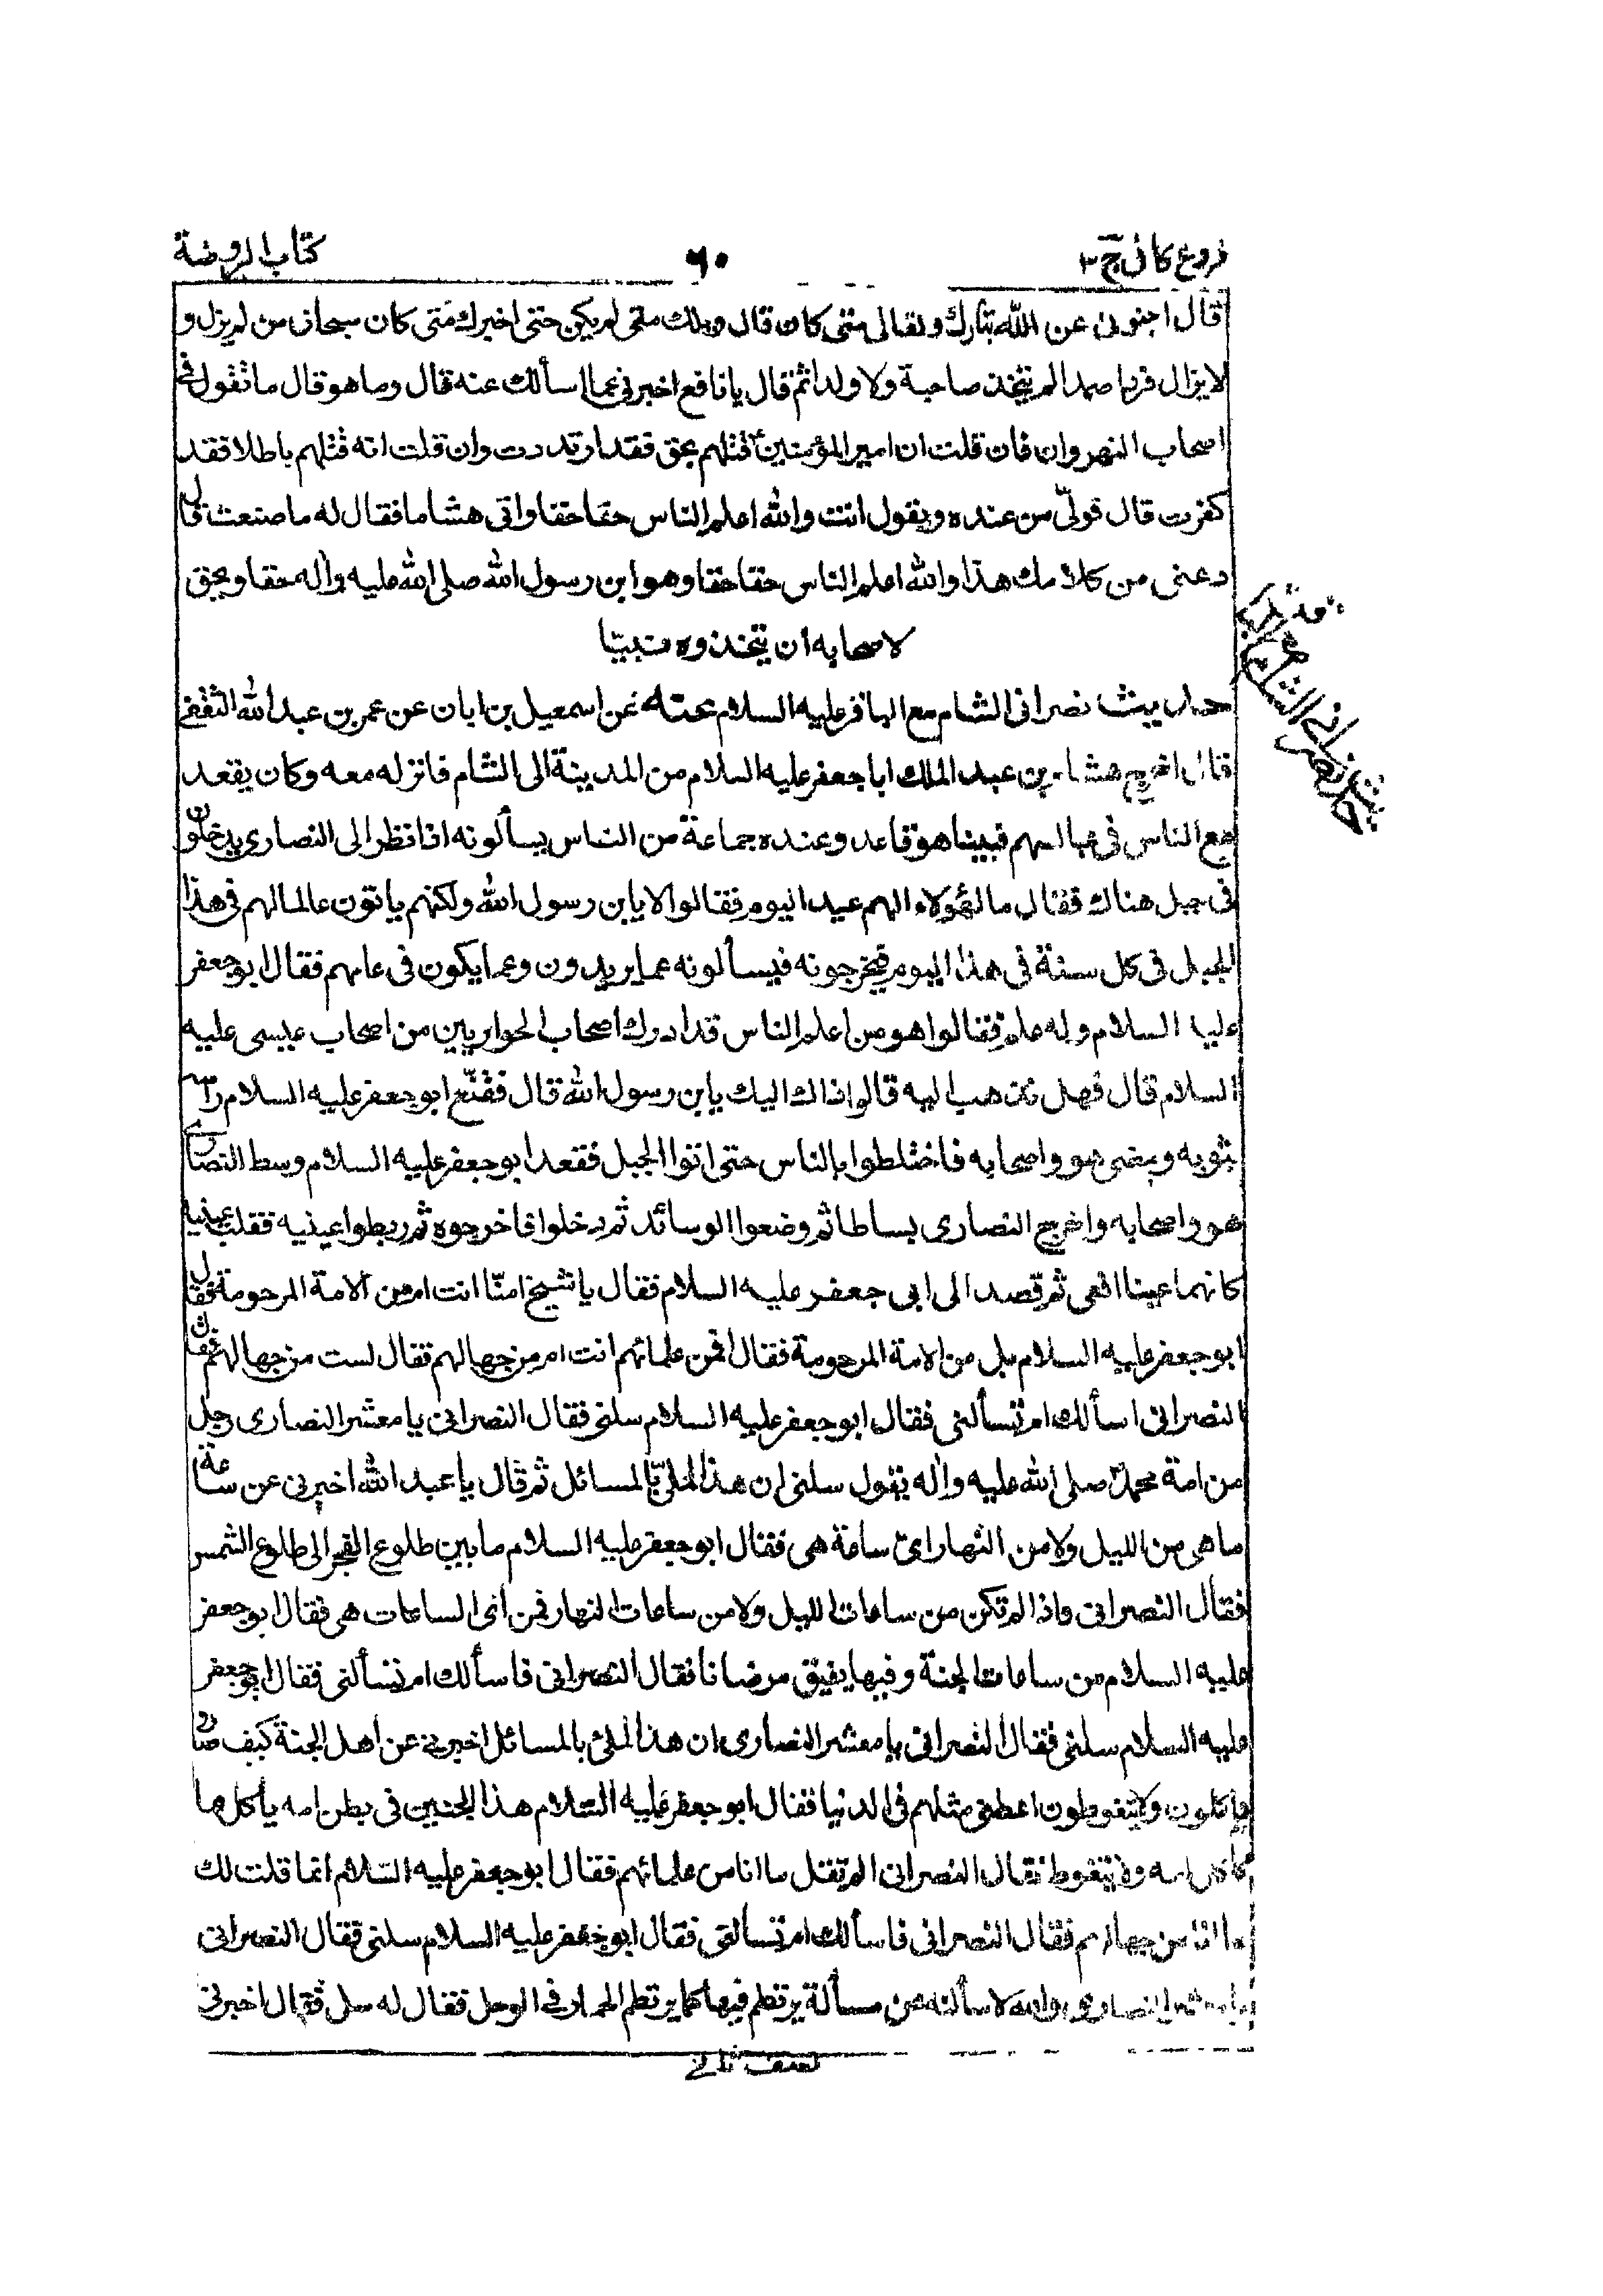 فروع كافى ج ٣
٦٠
كتاب الروضة
قال اخبرنى عن الله تبارك وتعالى متى كان قال ويلك متى لم يكن حتى اخبرك متى كان سبحان من لم يزل و
لا يزال فردا صمدا لم يتخذ صاحبة ولا ولدا ثم قال يا نافع اخبرنى عما اسألك عنه قال وما هو قال ما تقول فى
اصحاب النهروان فان قلت ان امير المؤمنين قتلهم بحق فقد ارتددت وان قلت انه قتلهم باطلا فقد
كفرت قال فولّى من عنده ويقول انت والله اعلم الناس حقا حقا واتى هشاما فقال له ما صنعت قال
دعنى من كلامك هذا والله اعلم الناس حقا حقا وهو ابن رسول الله صلى الله عليه واله حقا ويحق
لاصحابه ان يتخذوه نبيّا
حديث نصرانى الشام مع الباقر عليه السلام عنه عن اسمعيل بن ابان عن عمر بن عبد الله الثقفى
قال اخرج هشام بن عبد الملك ابا جعفر عليه السلام من المدينة الى الشام فانزله معه وكان يقعد
مع الناس فى مجالسهم فبينا هو قاعد وعنده جماعة من الناس يسألونه اذا نظر الى النصارى يدخلون
فى جبل هناك فقال ما لهؤلاء الهم عيد اليوم فقالوا لا يابن رسول الله ولكنهم ياتون عالما لهم فى هذا
الجبل فى كل سنة فى هذا اليوم فيخرجونه فيسألونه عما يريدون وعما يكون فى عامهم فقال ابو جعفر
عليه السلام وله علم فقالوا هو من اعلم الناس قد ادرك اصحاب الحواريين من اصحاب عيسى عليه
السلام قال فهل نذهب اليه قالوا ذاك اليك يابن رسول الله قال فقنّع ابو جعفر عليه السلام راسه
بثوبه ومضى هو واصحابه فاختلطوا بالناس حتى اتوا الجبل فقعد ابو جعفر عليه السلام وسط النصارى
هو واصحابه واخرج النصارى بساطا ثم وضعوا الوسائد ثم دخلوا فاخرجوه ثم ربطوا عينيه فقلب عينيه
كانهما عينا افعى ثم قصد الى ابى جعفر عليه السلام فقال يا شيخ امنّا انت ام من الامة المرحومة فقال
ابو جعفر عليه السلام بل من الامة المرحومة فقال افمن علمائهم انت ام من جهالهم فقال لست من جهالهم فقال
النصرانى اسألك ام تسألنى فقال ابو جعفر عليه السلام سلنى فقال النصرانى يا معشر النصارى رجل
من امة محمد صلى الله عليه واله يقول سلنى ان هذا لملىّ بالمسائل ثم قال يا عبد الله اخبرنى عن ساعة
ما هى من الليل ولا من النهار اىّ ساعة هى فقال ابو جعفر عليه السلام ما بين طلوع الفجر الى طلوع الشمس
فقال النصرانى فاذا لم تكن من ساعات الليل ولا من ساعات النهار فمن اى الساعات هى فقال ابو جعفر
عليه السلام من ساعات الجنة وفيها يفيق مرضانا فقال النصرانى فاسألك ام تسألنى فقال ابو جعفر
عليه السلام سلنى فقال النصرانى يا معشر النصارى ان هذا لملئ بالمسائل اخبرنى عن اهل الجنة كيف صاروا
ياكلون ولا يتغوطون اعطنى مثلهم فى الدنيا فقال ابو جعفر عليه السّلام هذا الجنين فى بطن امه ياكل مما
تاكل امه ولا يتغوط فقال النصرانى الم تقل ما انا من علمائهم فقال ابو جعفر عليه السّلام انما قلت لك
ما انا من جهالهم فقال النصرانى فاسألك ام تسألنى فقال ابو جعفر عليه السلام سلنى فقال النصرانى
يا معشر النصارى والله لاسألنه عن مسألة يرتطم فيها كما يرتطم الحمار فى الوحل فقال له سل فقال اخبرنى
حديث نصرانى الشام مع الباقر
نصف ثانى